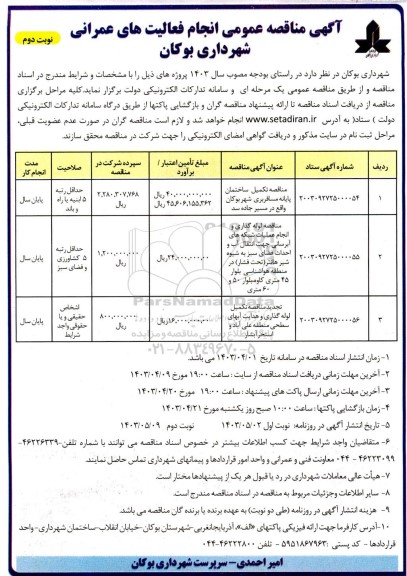 آگهی مناقصه عمومی انجام فعالیت های عمرانی
شهرداری بوکان
نوبت دوم
شهرداری بوکان در نظر دارد در راستای بودجه مصوب سال ۱۴۰۳ پروژه های ذیل را با مشخصات و شرایط مندرج در اسناد
مناقصه و از طریق مناقصه عمومی یک مرحله ای و سامانه تدارکات الکترونیکی دولت برگزار نماید.کلیه مراحل برگزاری
مناقصه از دریافت اسناد مناقصه تا ارائه پیشنهاد مناقصه گران و بازگشایی پاکتها از طریق درگاه سامانه تدارکات الکترونیکی
دولت ) ستاد( به آدرس www.setadiran.ir انجام خواهد شد و لازم است مناقصه گران در صورت عدم عضویت قبلی،
مراحل ثبت نام در سایت مذکور و دریافت گواهی امضای الکترونیکی را جهت شرکت در مناقصه محقق سازند.
ردیف شماره آگهی ستاد عنوان آگهی مناقصه مبلغ تأمین اعتبار / برآورد سپرده شرکت در مناقصه صلاحیت مدت انجام کار
۱ ۲۰۰۳۰۹۲۷۲۵۰۰۰۰۵۴ مناقصه تکمیل ساختمان پایانه مسافربری شهر بوکان واقع در مسیر جاده سد ۴۰,۰۰۰,۰۰۰,۰۰۰ ریال ۴۵,۶۰۶,۱۵۵,۳۶۲ ریال ۲,۲۸۰,۳۰۷,۷۶۸ ریال حداقل رتبه ۵ ابنیه یا راه و باند پایان سال
۲ ۲۰۰۳۰۹۲۷۲۵۰۰۰۰۵۵ مناقصه لوله گذاری و انجام عملیات شبکه های آبرسانی جهت انتقال آب و احداث فضای سبز به شیوه شیر هلندر(تحت فشار) در منطقه هواشناسی بلوار ۴۵ متری کاوه‌بلوار ۵۰ و ۶۰ متری ۲۴,۰۰۰,۰۰۰,۰۰۰ ریال ۱,۲۰۰,۰۰۰,۰۰۰ ریال حداقل رتبه ۵ کشاورزی و فضای سبز پایان سال
۳ ۲۰۰۳۰۹۲۷۲۵۰۰۰۰۵۶ تجدید مناقصه تکمیل لوله گذاری و هدایت آبهای سطحی منطقه علی آباد و استخر آبشار ۱۶,۰۰۰,۰۰۰,۰۰۰ ریال ۸۰۰,۰۰۰,۰۰۰ ریال اشخاص حقیقی و یا حقوقی واجد شرایط پایان سال
ParsNamadData
۰۲۱-۸۸۳۴۹۶۷۰-۵
۱- زمان انتشار اسناد مناقصه در سامانه تاریخ ۱۴۰۳/۰۴/۰۱ می باشد.
۲- آخرین مهلت زمانی دریافت اسناد مناقصه از سایت : ساعت ۱۹:۰۰ مورخ ۱۴۰۳/۰۴/۰۹
۳- آخرین مهلت زمانی ارسال پاکت های پیشنهاد : ساعت ۱۹:۰۰ مورخ ۱۴۰۳/۰۴/۲۰
۴- زمان بازگشایی پاکتها : ساعت ۱۰:۰۰ صبح روز یکشنبه مورخ ۱۴۰۳/۰۴/۲۱
۵- تاریخ انتشار آگهی در روزنامه: نوبت اول ۱۴۰۳/۰۵/۰۲ نوبت دوم ۱۴۰۳/۰۵/۰۹
۶- متقاضیان واجد شرایط جهت کسب اطلاعات بیشتر در خصوص اسناد مناقصه می توانند با شماره تلفن-۴۶۲۲۶۳۳۹
۴۶۲۲۳۰۹۹ - ۰۴۴ معاونت فنی و عمرانی و واحد امور قراردادها و پیمانهای شهرداری تماس حاصل نمایند.
۷- هیأت عالی معاملات شهرداری در رد یا قبول هر یک از پیشنهادها مختار است.
۸- سایر اطلاعات وجزئیات مربوط به مناقصه در اسناد مناقصه مندرج است.
۹- هزینه انتشار آگهی در روزنامه (طی دو نوبت) به عهده برنده یا برنده گان مناقصه می باشد.
۱۰-آدرس کارفرما جهت ارائه فیزیکی پاکتهای «الف»، آذربایجانغربی-شهرستان بوکان-خیابان انقلاب-ساختمان شهرداری-واحد
قراردادها - کد پستی :۵۹۵۱۸۶۷۹۶۳ - تلفن :۴۶۲۲۲۸۰۰-۰۴۴
امیر احمدی – سرپرست شهرداری بوکان